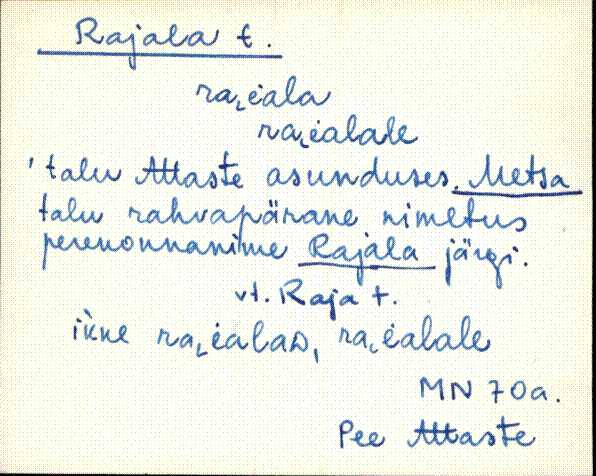 Rajala t.
ra˛i̯ala
ra˛i̯alale
'talu Attaste asunduses. Metsa
talu rahvapärane nimetus
perekonnanime Rajala järgi.
vt. Raja t.
ra˛i̯alas, ra˛i̯alale
MN 70a.
Pee Attaste